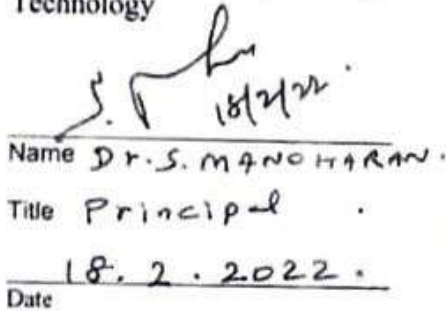 Technology
18/2/22.
Name Dr. S. MANOHARAN.
Title Principal .
18.2.2022.
Date